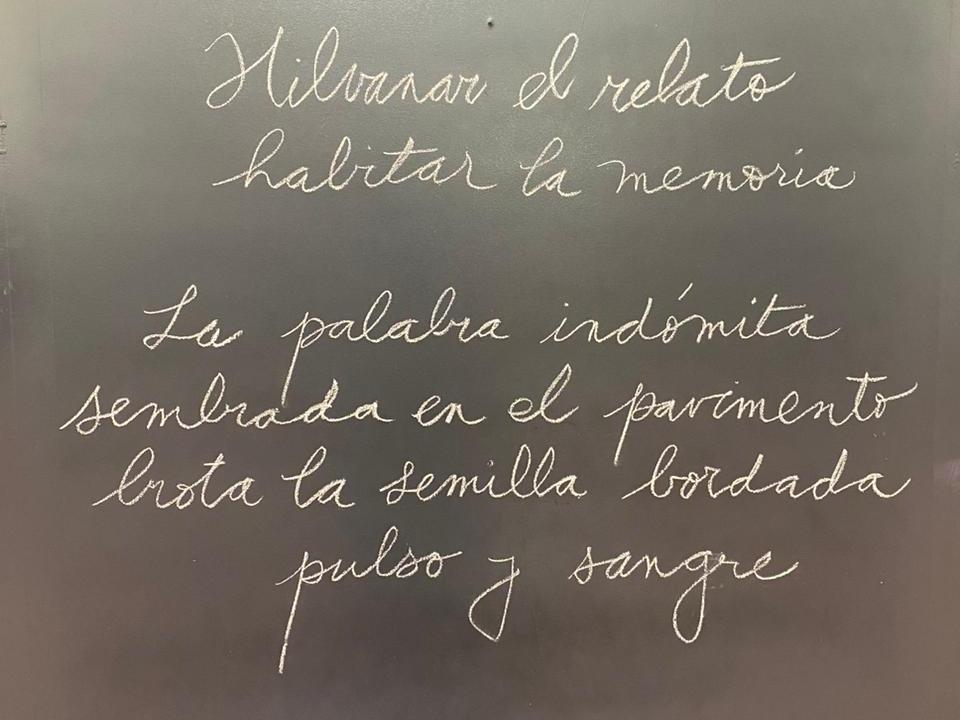 Hilvanar el relato
habitar la memoria
La palabra indómita
sembrada en el pavimento
brota la semilla bordada
pulso y sangre